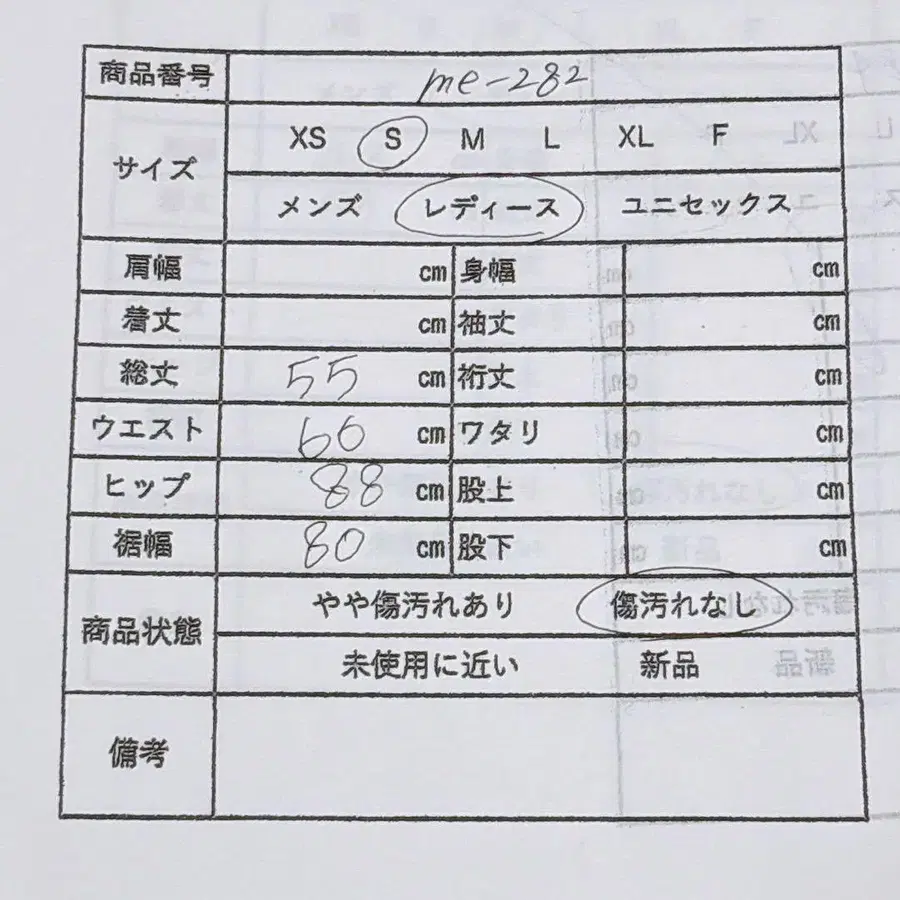 商品番号 me-282
サイズ XS S M L XL F
メンズ レディース ユニセックス
肩幅 cm 身幅 cm
着丈 cm 袖丈 cm
総丈 55 cm 裄丈 cm
ウエスト 66 cm ワタリ cm
ヒップ 88 cm 股上 cm
裾幅 80 cm 股下 cm
商品状態 やや傷汚れあり 傷汚れなし
未使用に近い 新品
備考